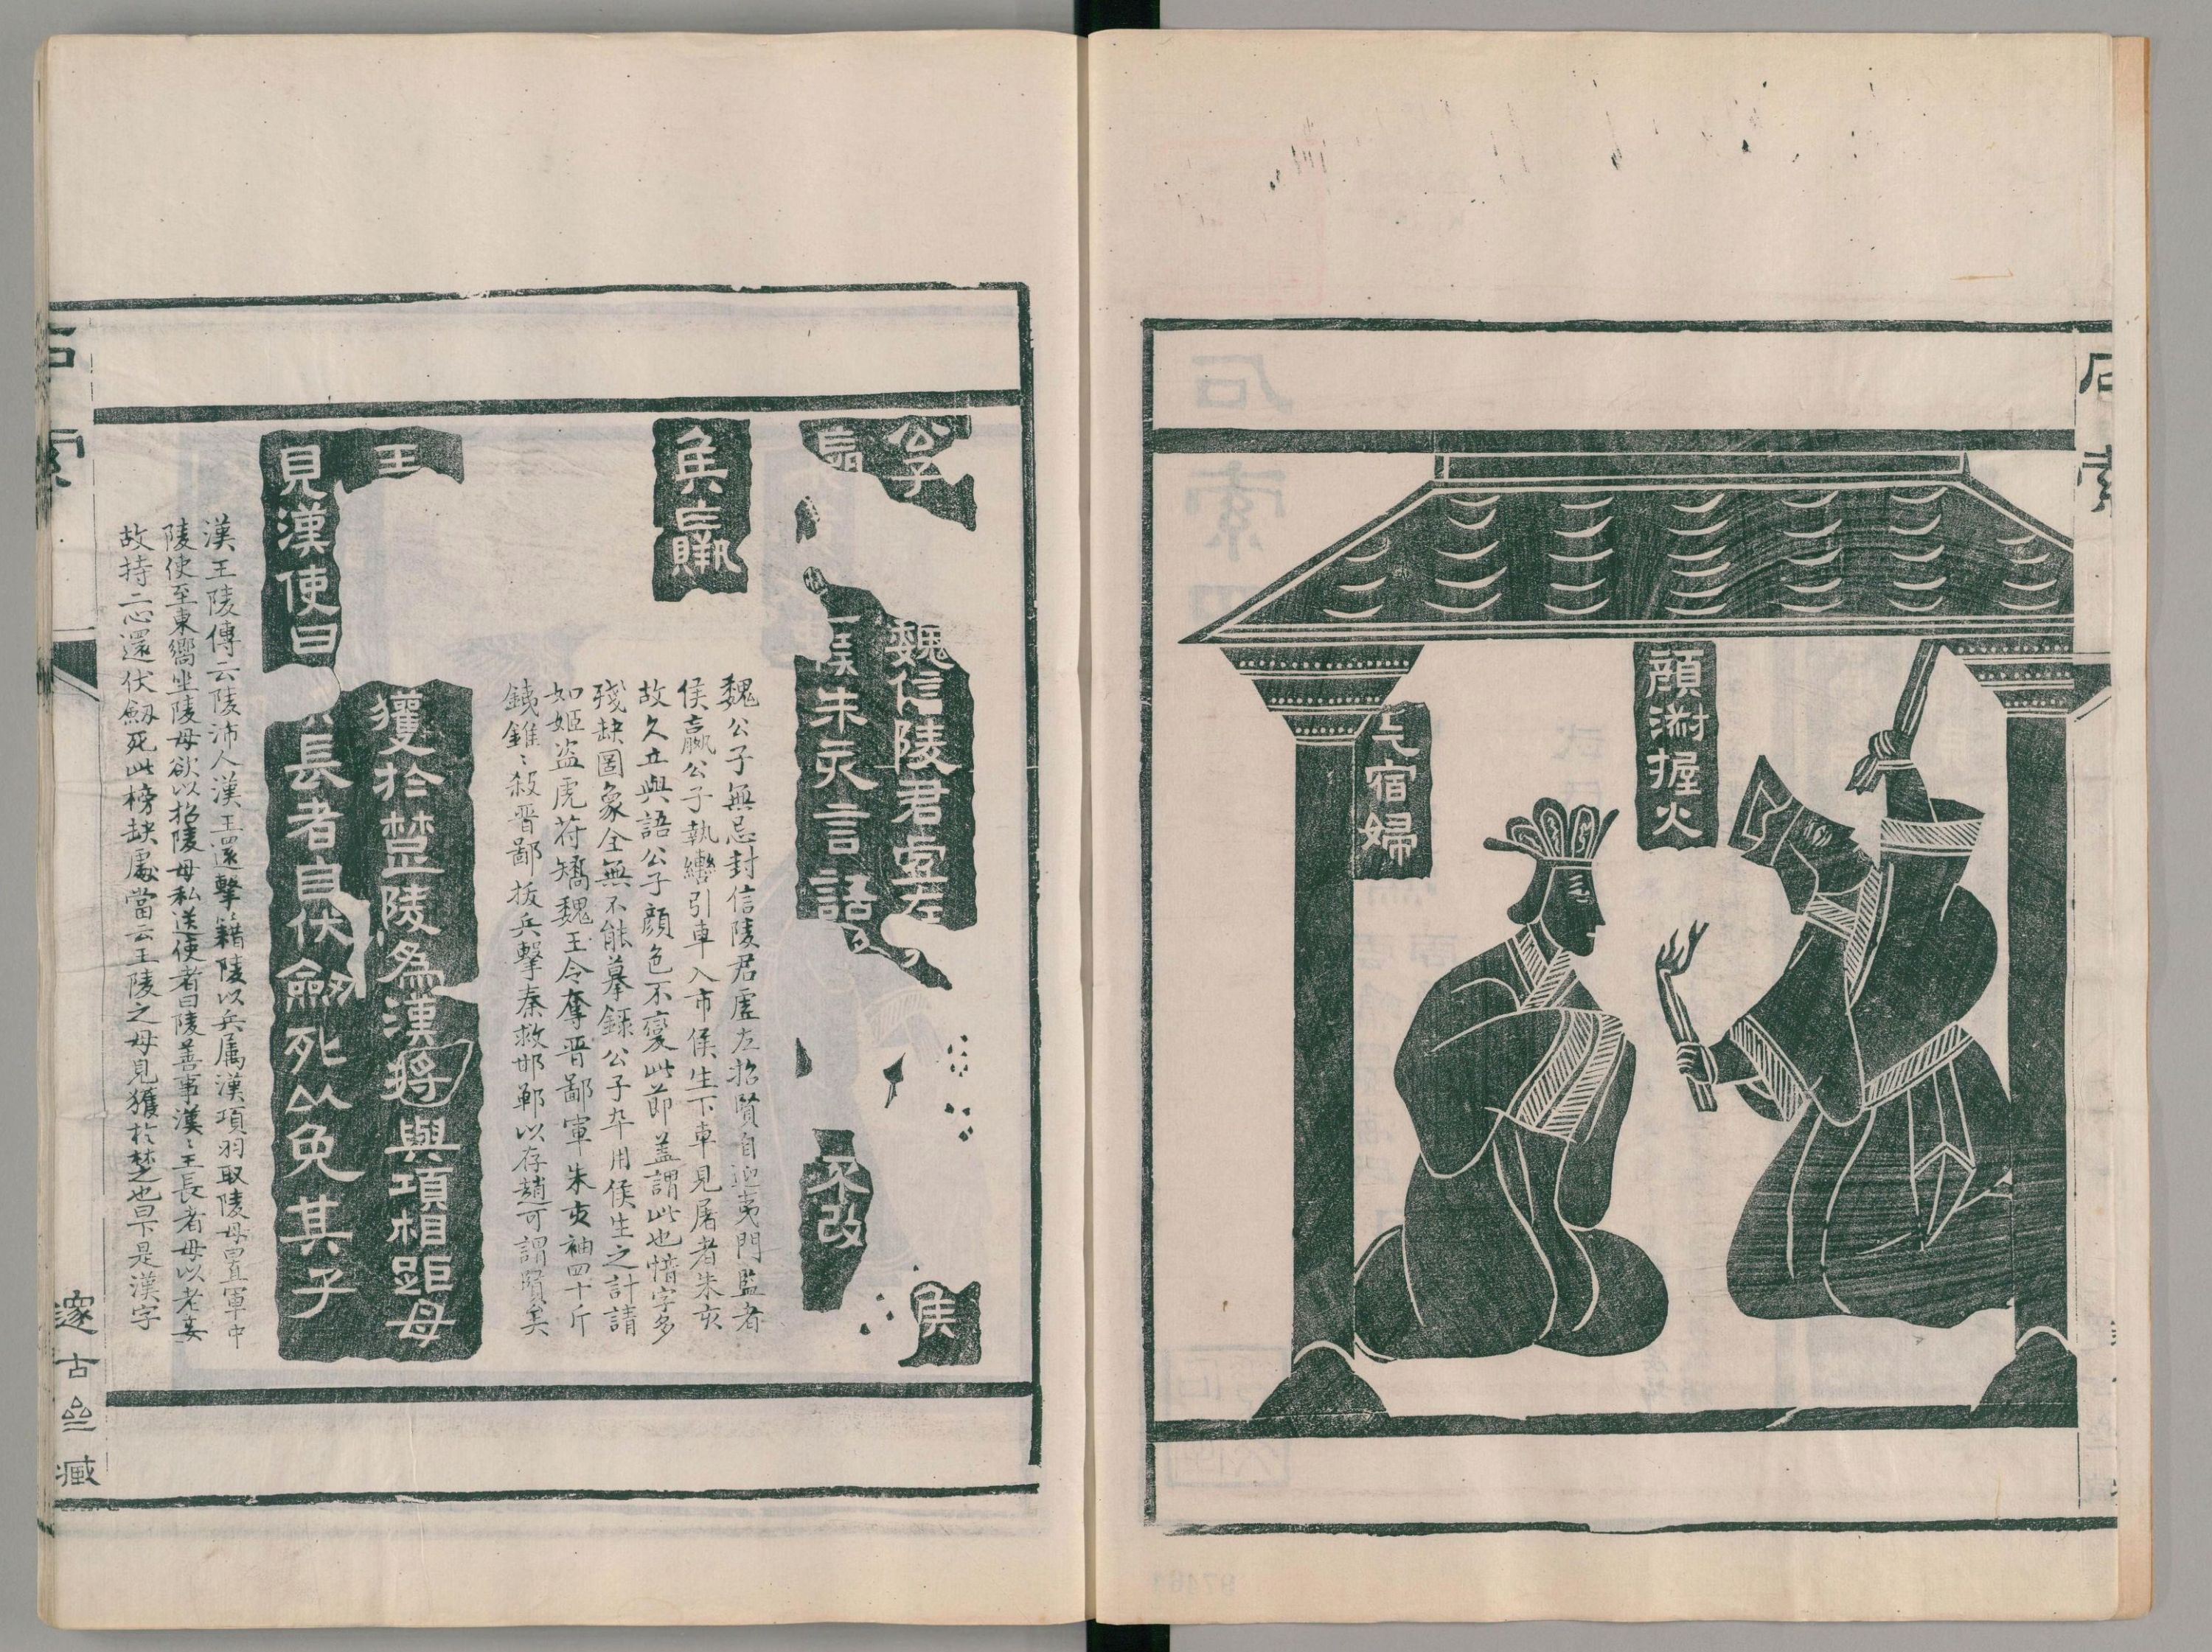 石索
顔淑握火
乞宿婦
公子
魏信陵君虛左
矦
朱亥言語
亥改
矦嬴
魏公子無忌封信陵君虛左招賢自迎夷門監者
侯嬴公子執轡引車入市侯生下車見屠者朱亥
故久立與語公子顔色不變此節蓋謂此也惜字多
殘缺圖象全無不能摹錄公子卒用侯生之計請
如姬盜虎符矯魏王令奪晉鄙軍朱亥袖四十斤
銕錐﹦殺晉鄙扳兵擊秦救邯鄲以存趙可謂賢矣
王
獲於楚陵為漢將與項相距母
見漢使曰
長者自伏劒死以免其子
漢王陵傳云陵沛人漢王還擊籍陵以兵属漢項羽取陵母置軍中
陵使至東嚮坐陵母欲以招陵母私送使者曰陵善事漢﹦王長者母以老妾
故持二心還伏劒死此榜缺處當云王陵之母見獲於楚也曰下是漢字
石索
邃古亝臧